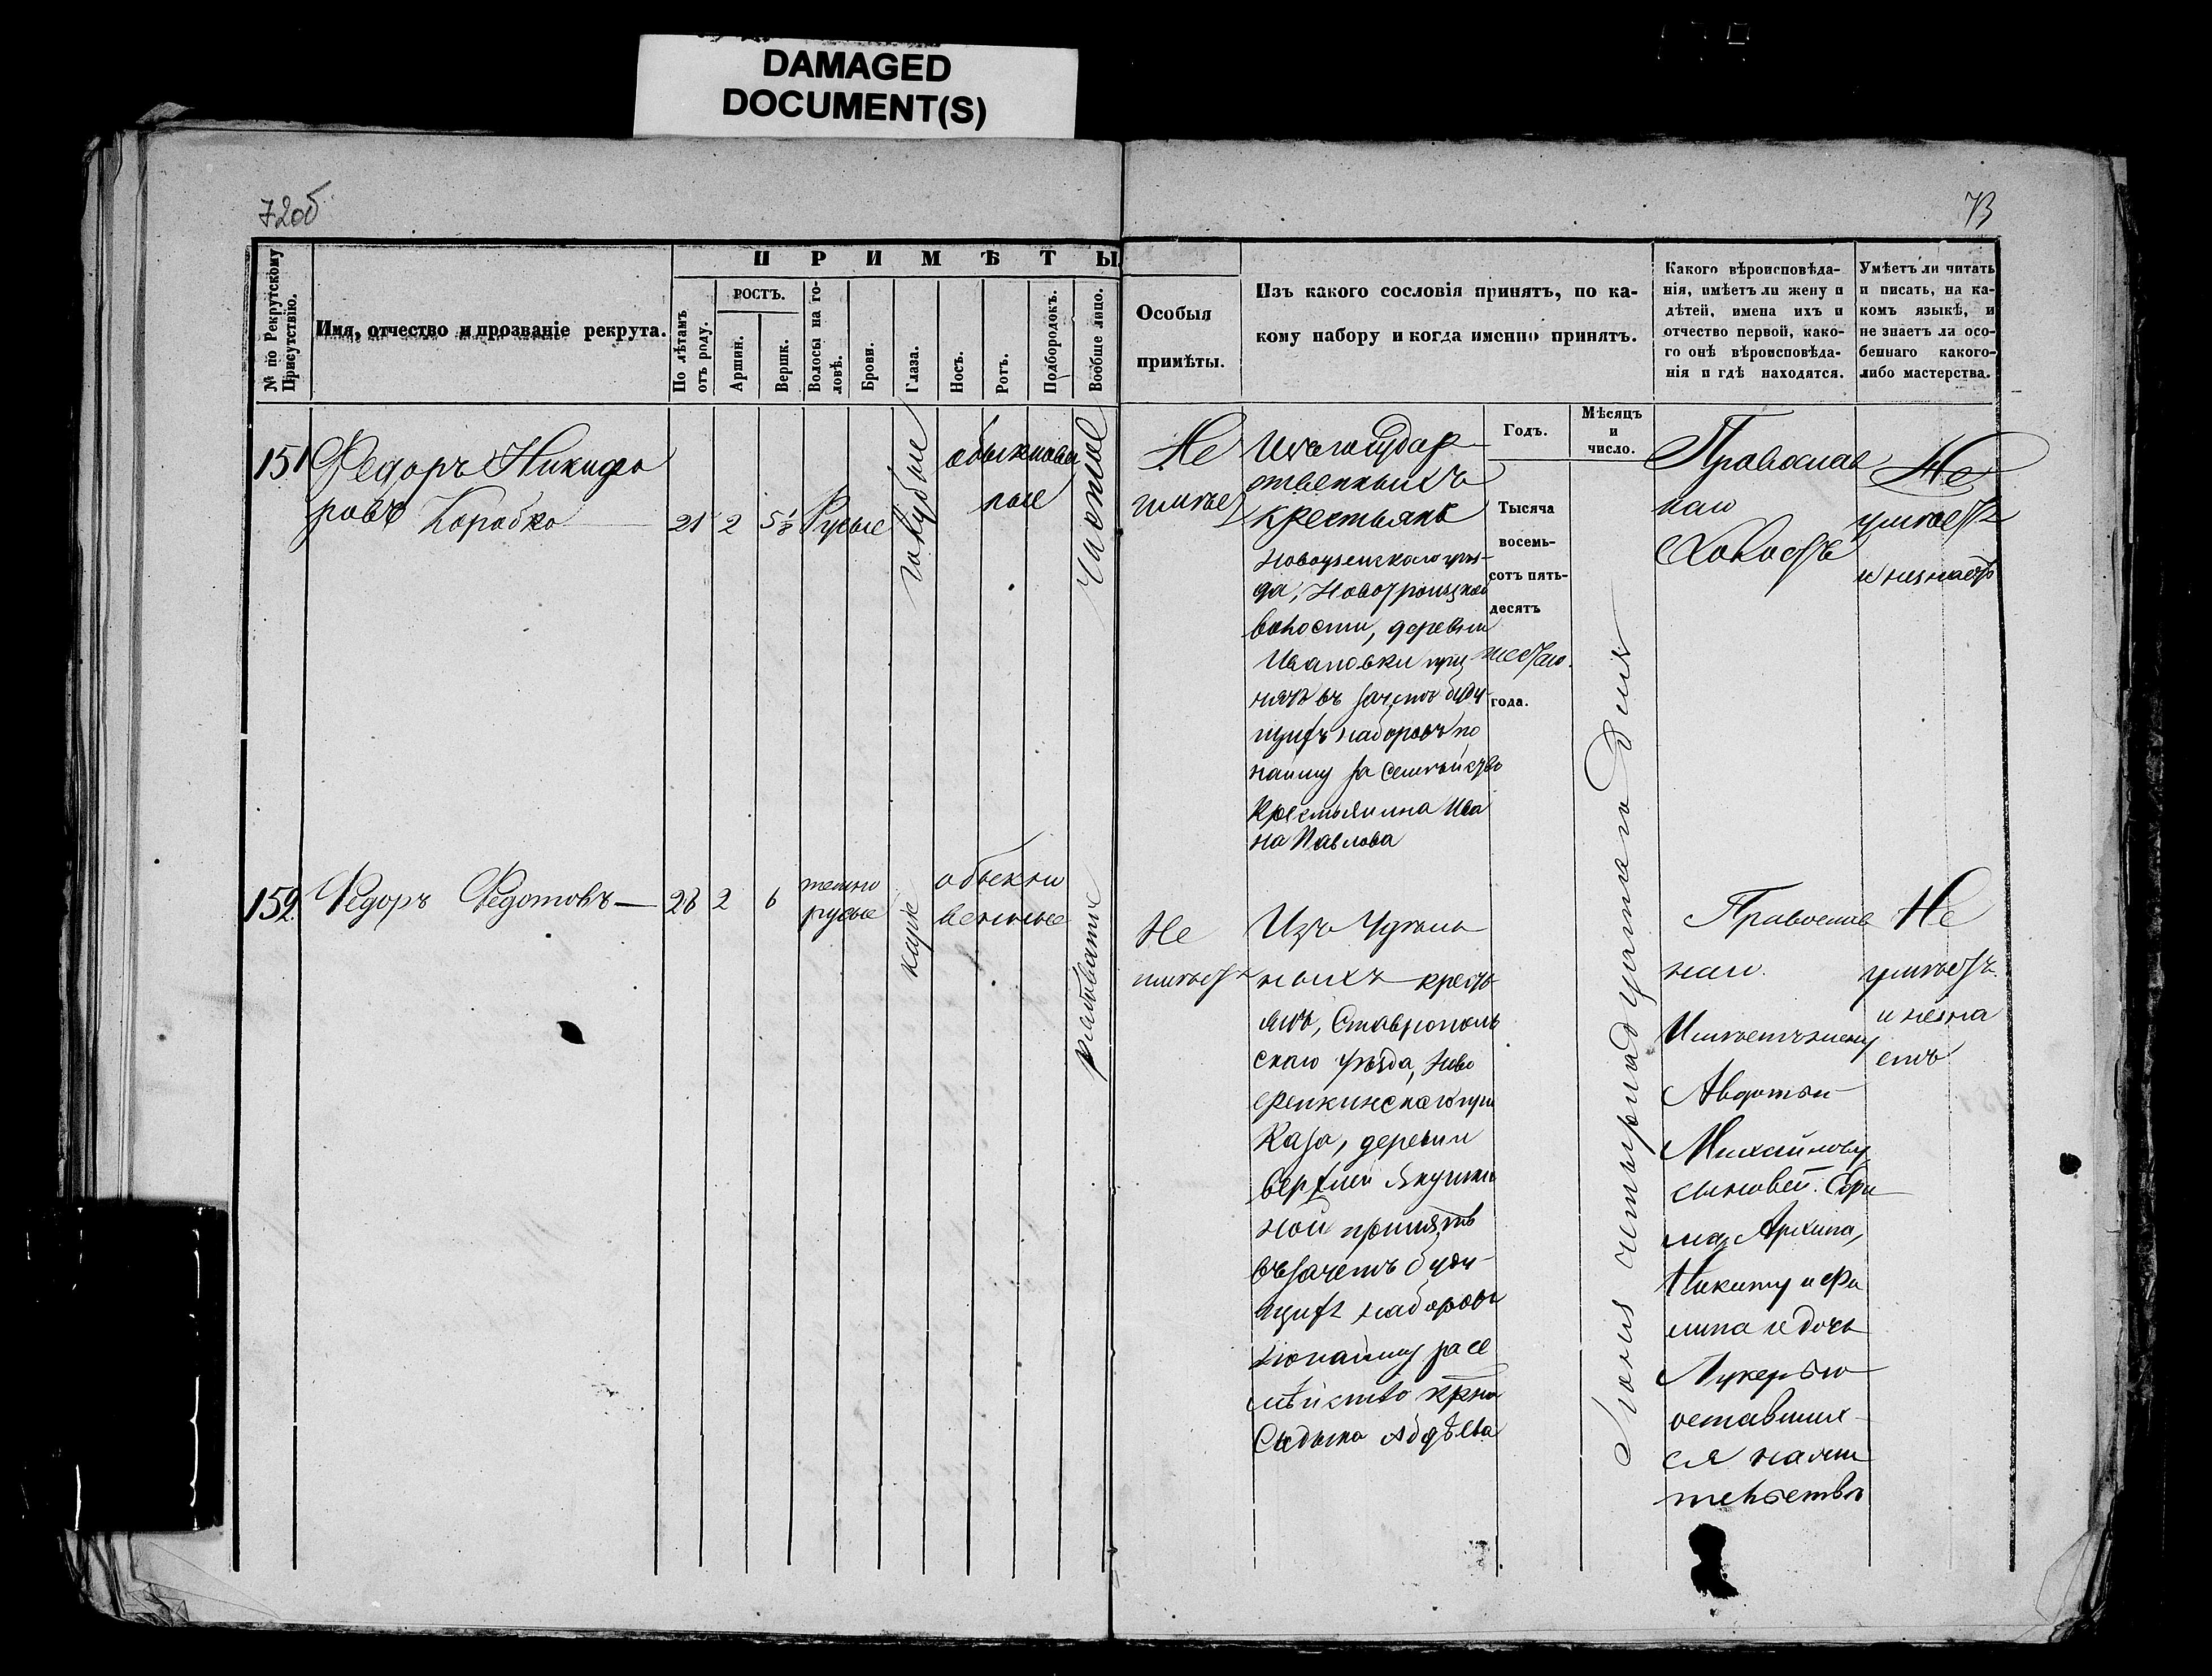 DAMAGED
DOCUMENT(S)
72об
73
№ по Рекрутскому Присутствію.
Имя, отчество и прозваніе рекрута.
ПРИМѢТЫ
По лѣтамъ отъ роду.
РОСТЪ.
Аршин.
Вершк.
Волосы на головѣ.
Брови.
Глаза.
Носъ.
Ротъ.
Подбородокъ.
Вообще лицо.
Особыя
примѣты.
Изъ какого сословія принятъ, по ка-
кому набору и когда именно принятъ.
Годъ.
Мѣсяцъ
и
число.
Какого вѣроисповѣда-
нія, имѣетъ ли жену и
дѣтей, имена ихъ и
отчество первой, како-
го онѣ вѣроисповѣда-
нія и гдѣ находятся.
Умѣетъ ли читать
и писать, на ка-
комъ языкѣ, и
не знаетъ ли осо-
беннаго какого-
либо мастерства.
151
Федоръ Никифо
ровъ Коробко
21 2 5½ Русые
голубые
обыкновен
ные
чистое
Не
имѣе
Изъ государ
ственныхъ
крестьянъ
Новоузенскаго уѣз-
да, Новотроицкой
волости, деревни
Ивановки при
нятъ въ зачетъ буду-
щихъ наборовъ по
найму за семейство
Крестьянина Ива
на Павлова
Тысяча
восемь-
сотъ пять-
десятъ
шестаго
года.
Іюня четырнадцатаго дня
Православ
наго
Холостъ
Не
умѣетъ
и незнаетъ
152
Федоръ Федотовъ
28 2 6
темно
русые
каріе
обыкно
венные
рябоватые
Не
имѣетъ
Изъ Удѣль
ныхъ кресть
янъ, Ставрополь
скаго уѣзда, Ново
при
каза, деревни
Верхней Якушки
ной принятъ
въ зачетъ буду-
щихъ наборовъ
по найму за се
мѣйство крна
Садыка Абдѣева
Православ
наго.
Имѣетъ жену
Авдотью
Михайлову
сыновей:
Архипа,
Никиту и Фи
липа и дочь
Лукерью
оставших-
ся на жи
тельствѣ
Не
умѣетъ
и незна
етъ